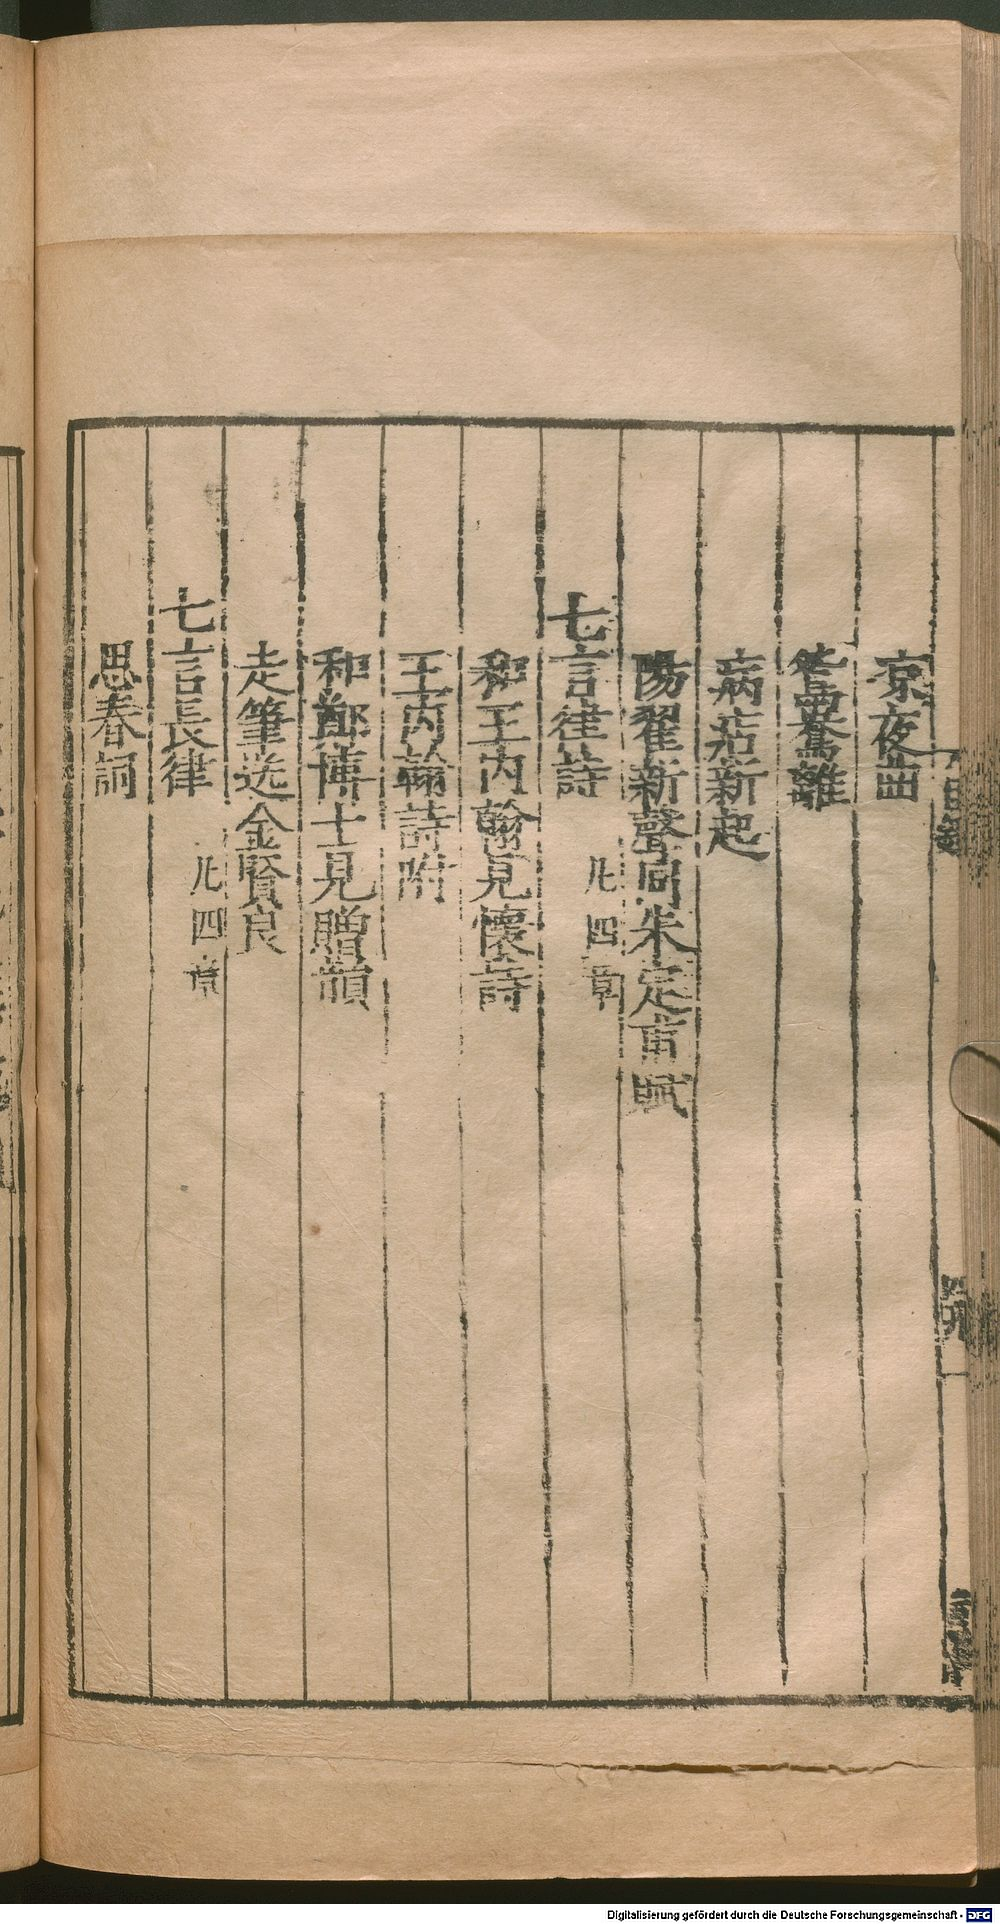 涼夜曲
鴛鴦離
病店新起
陽翟新聲同朱定甫賦
七言律詩 凡四章
和王内翰見懷詩
王内翰詩附
和鄭博士見贈韻
走筆送金賢良
七言長律 凡四章
思春詞
目錄
Digitalisierung gefördert durch die Deutsche Forschungsgemeinschaft - DFG